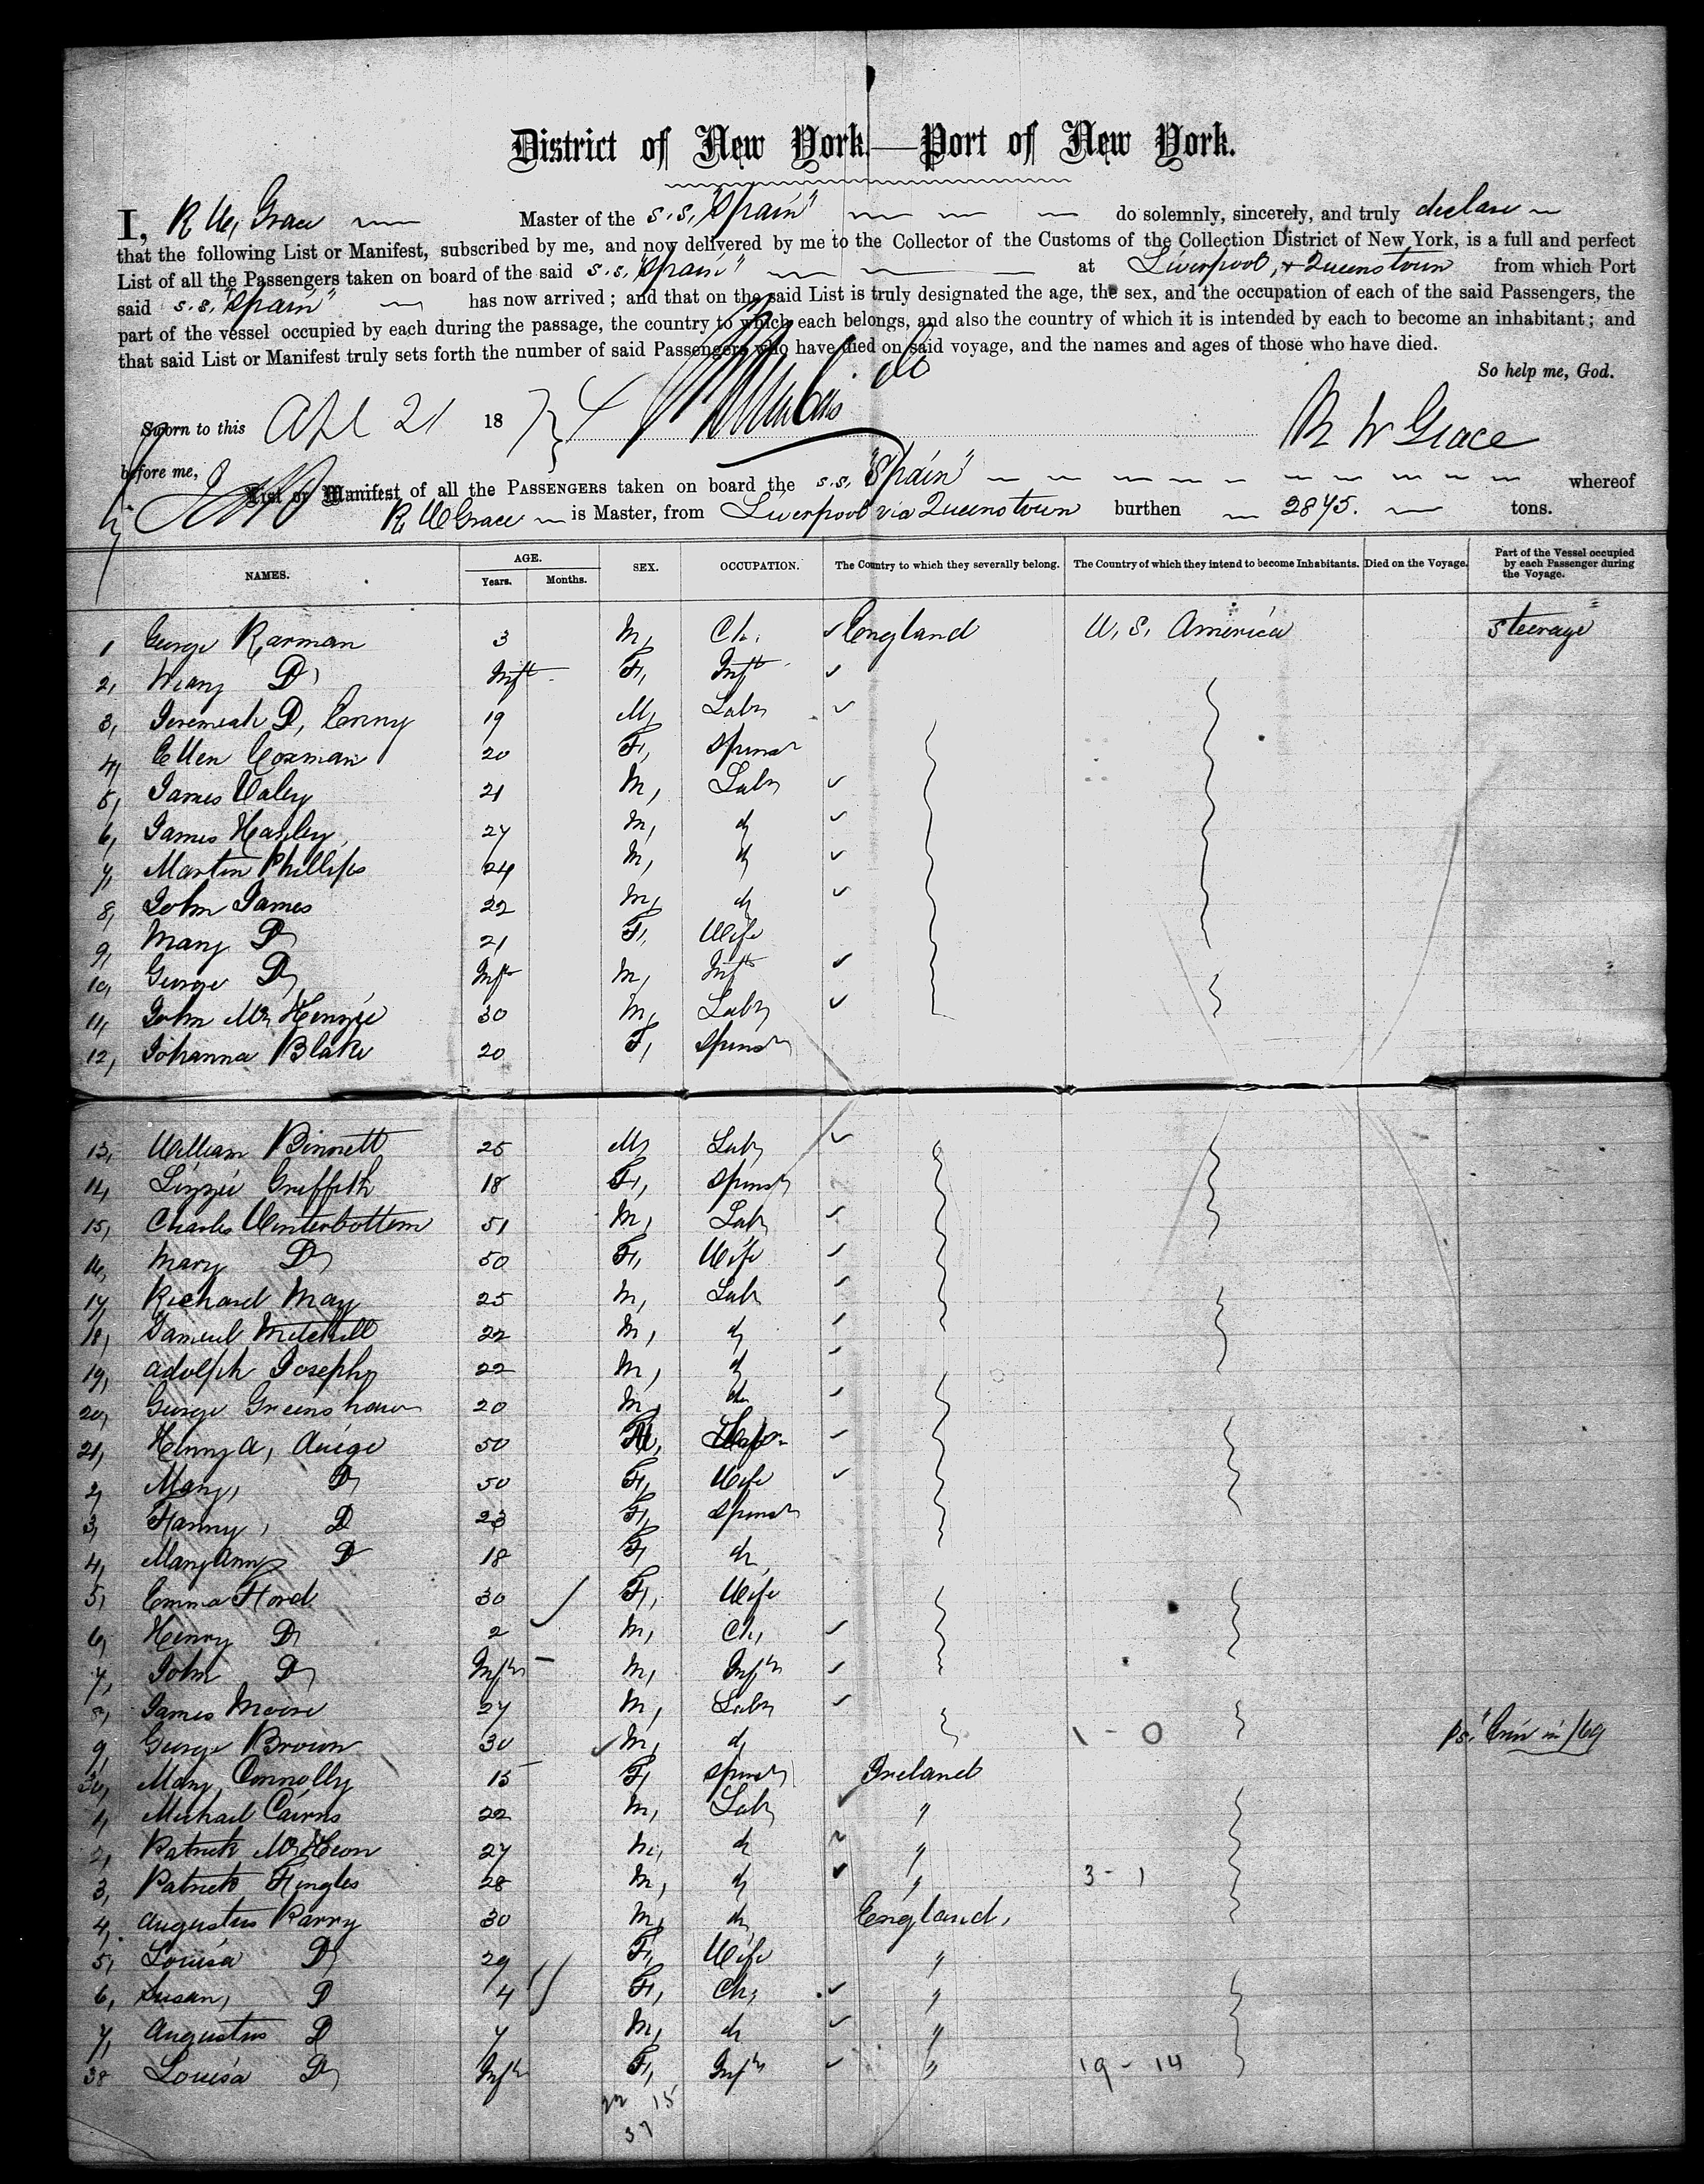 District of New York—Port of New York.
I, R W, Grace Master of the s.s. "Spain" do solemnly, sincerely, and truly declare
that the following List or Manifest, subscribed by me, and now delivered by me to the Collector of the Customs of the Collection District of New York, is a full and perfect
List of all the Passengers taken on board of the said s.s. "Spain" at Liverpool, & Queenstown from which Port
said s.s. "Spain" has now arrived; and that on the said List is truly designated the age, the sex, and the occupation of each of the said Passengers, the
part of the vessel occupied by each during the passage, the country to which each belongs, and also the country of which it is intended by each to become an inhabitant; and
that said List or Manifest truly sets forth the number of said Passengers who have died on said voyage, and the names and ages of those who have died.
So help me, God.
Sworn to this Apl 21 1874 R W Grace
before me,
List or Manifest of all the PASSENGERS taken on board the s.s. "Spain" whereof
R W Grace is Master, from Liverpool via Queenstown burthen 2845. tons.
NAMES. AGE. Years. Months. SEX. OCCUPATION. The Country to which they severally belong. The Country of which they intend to become Inhabitants. Died on the Voyage. Part of the Vessel occupied by each Passenger during the Voyage.
1 George Karman 3 M, Ch. England U, S, America Steerage
2, Mary D Inft F, Inft
3, Jeremiah D, 19 M, Labr
4, Ellen Coxman 20 F, Spinsr
5, James Daley 21 M, Labr
6, James Hanley 27 M, d
7, Martin Phillips 24 M, d
8, John James 22 M, d
9, Mary D 21 F, Wife
10, George D Inft M, Inft
11, John McKenzie 30 M, Labr
12, Johanna Blake 20 F, Spinsr
13, William Binnett 25 M, Labr
14, Lizzie Griffith 18 F, Spinsr
15, Charles Winterbottom 51 M, Labr
16, Mary D 50 F, Wife
17, Richard May 25 M, Labr
18, Samuel Mitchell 22 M, d
19, Adolph Josephs 22 M, d
20, George Greenshaw 20 M, d
21, Henry A, 50 M,
2, Mary, D 50 F, Wife
3, Fanny, D 23 F, Spinsr
4, Mary Ann D 18 F, d
5, Emma Ford 30 F, Wife
6, Henry D 2 M, Ch,
7, John D Inft M, Inft
8, James Moore 27 M, Labr
9, George Brown 30 M, d 1 - 0
30, Mary Connolly 15 F, Spinsr Ireland
1, Michael Cairns 22 M, Labr "
2, Patrick McKeon 27 M, d "
3, Patrick Fingles 28 M, d " 3 - 1
4, Augustus Parry 30 M, d England,
5, Louisa D 29 F, Wife "
6, Susan, D 4 F, Ch, "
7, Augustus D 7 M, d "
38 Louisa D Inft F, Inft " 19 - 14
22 15
37